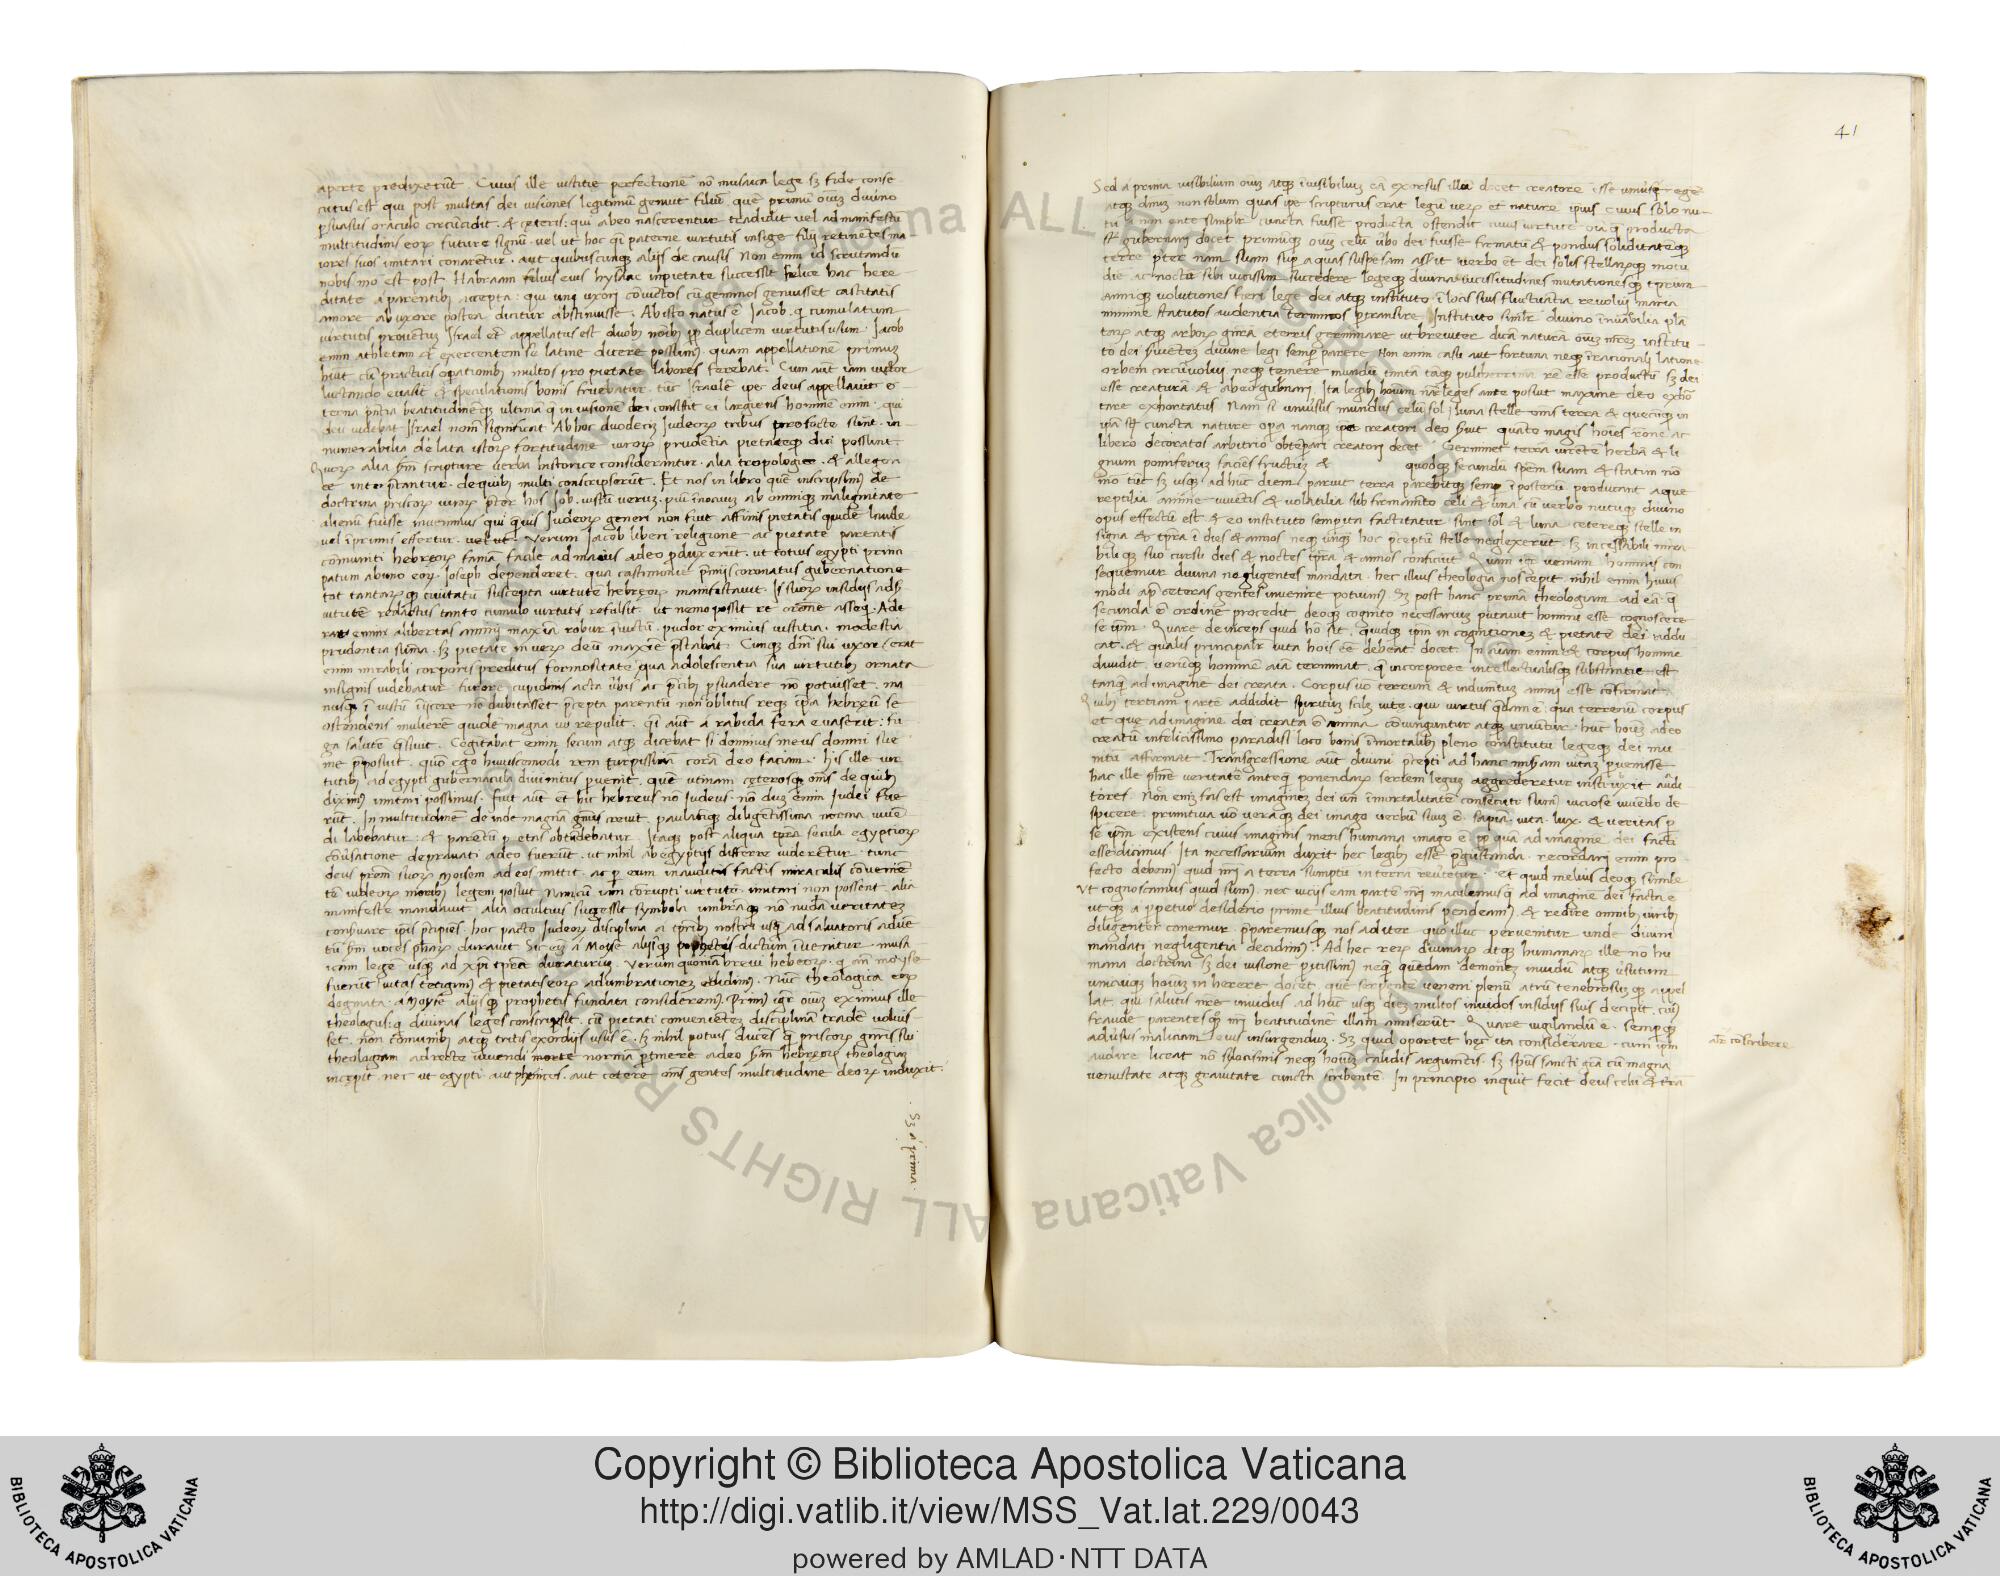 aperte predixerūt. Cuius ille iustitie perfectionē nō musaica lege sȝ fide conse-
cutus est qui post multas dei uisiones legitimū genuit filiū, quē primū oīuȝ diuino
ꝑsuasus oraculo circūcidit. & ceteris qui ab eo nascerentur tradidit uel ad manifestū
multitudinis eoꝝ future signū. uel ut hoc q̄i paterne uirtutis insigne filij retinētes ma
iores suos imitari conarētur. aut quibuscunqꝫ alijs de causis Non enim id scrutandū
nobis mō est. post Habraam filius eius hysaac in pietate successit felice hac here
ditate a parentibꝫ accepta: qui uni uxori cōiūctos cū geminos genuisset castitatis
amore ab uxore postea dicitur abstinuisse. Ab isto natus ē Jacob. q cumulatum
uirtutis prouentuȝ Israel et appellatus est duobꝫ noībꝫ ꝓp duplicem uirtutis usum. Jacob
enim athletam & exercentem se latine dicere possumꝫ. quam appellationē primuȝ
hūit cū practicis oꝑationibꝫ multos pro pietate labores ferebat. Cum aūt iam uictor
luctando euasit & speculationis bonis fruebatur. tūc Israelē ipē deus appellauit e
terna p̄mia beatitudinēqꝫ ultimā q in uisione dei consistit ei largiens hominē enim qui
deū uidebat Israel nomē significat Ab hoc duodeciȝ Judeoꝝ tribus profecte sunt. in-
numerabilia de lata istoꝝ fortitudine uiroꝝ prudētia pietateqꝫ dici possunt.
Quoꝝ alia s̄m scripture uerba historice considerantur. alia tropologice. & allegori
ce interp̄tantur. de quibꝫ multi conscripserūt. Et nos in libro quē inscripsimꝫ de
doctrina priscoꝝ uiroꝝ p̄ter hos Job. iustū ueruȝ. piū īnocuū ab omniqꝫ malignitate
alienū fuisse inuenimus qui q̄uis Judeoꝝ generi non fuit affinis pietatis quidē laude
uel īprimis effertur. Verum Jacob liberi religione ac pietate parentis
cōmuniti hebreoꝝ famā facile ad maius adeo ꝑduxerūt. ut totius egypti princi
patum ab uno eoꝝ Joseph dependeret. qua castimonie p̄mijs coronatus gubernatione
tot tantarūqꝫ ciuitatū suscepta uirtutē hebręoꝝ manifestauit. Is suoꝝ insidijs ad s̄
uitutē redactus tanto cumulo uirtutis refulsit. ut nemo possit re orōne asseq. Ade
rat enim a libertas animi maxīa robur īuictū. pudor eximius iustitia. modestia
prudentia sūma. sȝ pietate in ueꝝ deū maxīe p̄stabat. Cunqꝫ dn̄i sui uxor (erat
enim mirabili corporis preditus formositate qua adolescentia sua uirtutibꝫ ornata
insignis uidebatur furore cupidinis acta ūbis ac p̄cibꝫ ꝑsuadere nō potuisset. ma
nusqꝫ ī iustū īijcere nō dubitasset p̄cepta parentū non oblitus reqꝫ ip̄a hebręū se
ostendens mulierē quidē magna ui repulit. q̄i aūt a rabida fera euaserit. fu
ga salutē q̄siuit. Cogitabat enim secum atqꝫ dicebat si dominus meus domui sue
me p̄posuit. quō ego huiuscemodi rem turpissimā corā deo faciam. His ille uir
tutibꝫ ad egypti gubernacula diuinitus ꝑuenit. quē utinam cęterosqꝫ om̄s de quibꝫ
diximꝫ imitari possimus. Fuit aūt et hic hebreus nō Judeus. nō duȝ enim Judei fue
rūt. In multitudinē deinde magnā genus creuit. paulatiqꝫ diligētissima norma uiuē
di labebatur: & parētū ꝑ etas obtūdebatur Itaqꝫ post aliqua tꝑa secula egyptioꝝ
cōuersatione deprauati adeo fuerūt. ut nihil ab egyptijs differre uiderētur. tunc
deus prȩm suoꝝ Moisem ad eos mittit. ac ꝑ eum inauditis factis miraculis conueniē
tē iudeoꝝ moribꝫ legem posuit Nam cū iam corrupti uirtutū imitari non possent alia
manifeste mandauit alia occultius suggessit symbola umbrāqꝫ nō nudā ueritateȝ
conseruare ip̄is p̄cipies. hoc pacto Judeoꝝ disciplina a tꝑibꝫ nostri usqꝫ ad saluatoris aduē
tū s̄m uoces ꝓphaꝝ durauit. Sic eiȝ a Moyse alijsqꝫ prophetis dictum īuenitur. musa
icam legē usqꝫ ad xp̄i tꝑa duraturuȝ. Verum quoniā breui hebreoꝝ. q ān moyse
fuerūt uitas tetigimꝫ & pietatis eoꝝ adumbrationeȝ edidimꝫ. Nūc theologica eoꝝ
dogmata a Moyse alijsqꝫ prophetis fundata consideremꝫ. Primꝫ igr̄ oīuȝ eximius ille
theologus. q diuinas leges conscripsit. cū pietati conuenientē disciplinā tradē uoluis
set. non cōmunibꝫ atqꝫ tritis exordijs usus ē. sȝ nihil potius ducēs q̄ priscoꝝ gn̄is sui
theologiam ad recte uiuendi normā ꝑtinere adeo s̄m hebręoꝝ theologiaȝ
incępit nec ut egypti. aut phenices. aut cetere om̄s gentes multitudinē deoꝝ induxit.
. Sȝ a prima.
41
Sed a prima uisibilium oīuȝ atqꝫ īuisibiliuȝ cā exorsus illā docet creatorē esse uniusqꝫ regē
atqꝫ dīnuȝ non solum quas ipē scripturus erat legū ueꝝ et nature ipius cuius solo nu-
tu a non ente simplr cuncta fuisse producta ostendit cuius uirtute oīa q producta
sūt gubernari docet primūqꝫ oīuȝ celū ūbo dei fuisse firmatū & pondus soliditatēqꝫ
terre p̄ter nām suam suꝑ aquas suspensam asserit uerbo et dei solis stellarūqꝫ motu
die ac noctū sibi uicissim succedere legeqꝫ diuina uicissitudines mutationesqꝫ tꝑrum
annīqꝫ uolutiones fieri lege dei atqꝫ instituto ī locis suis fluctuātia reuolui maria
minime statutos audentia terminos ꝑtransire Instituto simlr diuino īnūabilia plā
taꝝ atqꝫ arboꝝ gn̄ra eternis germinare ut breuiter dicā naturā oīuȝ mr̄eȝ institu-
to dei ꝼuientez diuine legi semꝑ parere Non enim casu aut fortuna neqꝫ irrationali latione
orbem circūuolui neqꝫ temere mundū tantā tāqꝫ pulcherrima rē esse productū sȝ dei
esse creaturā & ab eo gubnari Ita legibꝫ hoīum nr̄e leges ante posuit maxime deo extē
tare exhortatus Nam si uniuersus mundus celū sol luna stelle oīns terra & quecūqꝫ in
ip̄a sūt cuncta nature oꝑa nanqꝫ ipē creatori deo suīt quāto magis hoīes rōne ac
libero decoratos arbitrio obtꝑari creatori decet Germinet terra uirētē herbā & li
gnum pomiferuȝ faciēs fructuȝ & quodqꝫ secundū spēm suam & statim nō
mō tūc sȝ usqꝫ ad hūc diem paruit terra parebitqꝫ semꝑ ī posterū. producant aque
reptilia anime uiuentis & uolatilia sub firmam̄to celi & una cū uerbo nutuqꝫ diuino
opus effectū est & eo instituto semper ita factitatur. sint sol & luna cetereqꝫ stelle in
signa & tꝑra ī dies & annos neqꝫ unqꝫ hoc p̄ceptū stelle neglexerūt. sȝ incessabili mira
biliqꝫ suo cursu dies & noctes tꝑra & annos conficiūt Quam igr̄ ueniam homines con
sequemur diuina negligentes mandata. hec illius theologia nos cepit. nihil enim huius
modi ap̄ ceteras gentes inuenire potiumꝫ Sȝ post hanc primā theologiam ad eā q̄
secunda ē ordine procedit deoqꝫ cognito necessariuȝ putauit homini esse cognoscere
se ip̄m. Quare deinceps quid hō sit. quidqꝫ ip̄m in cognitioneȝ & pietatē dei addu
cat. & qualis principalr uita hoīs eē debeat docet. In aīam enim & corpus hominē
diuidit. uerūqꝫ hominē aīā terminat. q̄ incorporee intellectualisqꝫ substantie est
tanqꝫ ad imaginē dei creata. Corpus uō terrenū & indumētuȝ animi esse cōfirmat.
Quibꝫ tertiam partē addidit spirituȝ scilꝫ uite. qui uirtus q̄dam ē. qua terrenū corpus
et que ad imaginē dei creata ē anima coniunguntur atqꝫ uniūtur. huc hoīuȝ adeo
creatū in felicissimo paradisi loco bonis īmortalibꝫ pleno constitutū legeqꝫ dei mu
nitū affirmat. Transgressione aūt diuini p̄cepti ad hanc misam uitaȝ ꝑuenisse
hac ille p̄hīe ueritatē anteqꝫ ponendaꝝ seriem legum aggrederetur instruxit audi
tores. Non eniȝ fas est imagineȝ dei uñ īmortalitatē consecuti sumꝫ uiciose uiuēdo de
spicere. primitiua uō ueraqꝫ dei imago uerbū suuȝ ē. sapiā. uita. lux. & ueritas ꝑ
se ip̄m existens cuius imaginis mens humana imago ē ꝓp quā ad imaginē dei facti
esse dicimus. Ita necessarium duxit hec legibꝫ esse p̄gustanda. recordari enim pro
fecto debemꝫ quid nr̄i a terra sumptū in terrā reūtetur. Et quid melius deoqꝫ simile
Ut cognoscamus quid sumꝫ. nec uicijs eam partē nr̄i maculemus q̄ ad imaginē dei facta ē
utqꝫ a ꝑpetuo desiderio prime illius beatitudinis pendeamꝫ. & redire omnibꝫ uiribꝫ
diligenter conemur. p̄paremusqꝫ nos aditer quo illuc peruenitur unde diuini
mandati negligentia decidimꝫ. Ad hec reꝝ diuinaꝝ atqꝫ humanaꝝ ille nō hu
mana doctrina sȝ dei uisione ꝑitissimꝫ neqꝫ quēdam demoneȝ inuidū atqꝫ ūsutum
unicuiqꝫ hoīuȝ inherere docet. quē serpentē ueneni plenū atrū tenebrosuȝqꝫ appel
lat. qui salutis nr̄e inuidus ad hūc usqꝫ dieȝ multos inuidos insidijs suis decipit. cuiꝫ
fraude parentes qꝫ nr̄i beatitudinē illam amiserūt Quare uigilandū ē. semꝑqꝫ
aduersus maliciam eius insurgenduȝ. Sȝ quid oportet hęc ita considerare. cum ip̄m
audire liceat nō syllocismis neqꝫ hoīuȝ calidis argumētis. sȝ sp̄us sancti gr̄a cū magna
uenustate atqꝫ grauitate cuncta scribentē. In principio inquit fecit deus celū & trā
alr̄ cōscribere
Copyright © Biblioteca Apostolica Vaticana
http://digi.vatlib.it/view/MSS_Vat.lat.229/0043
powered by AMLAD·NTT DATA
BIBLIOTECA APOSTOLICA VATICANA
BIBLIOTECA APOSTOLICA VATICANA